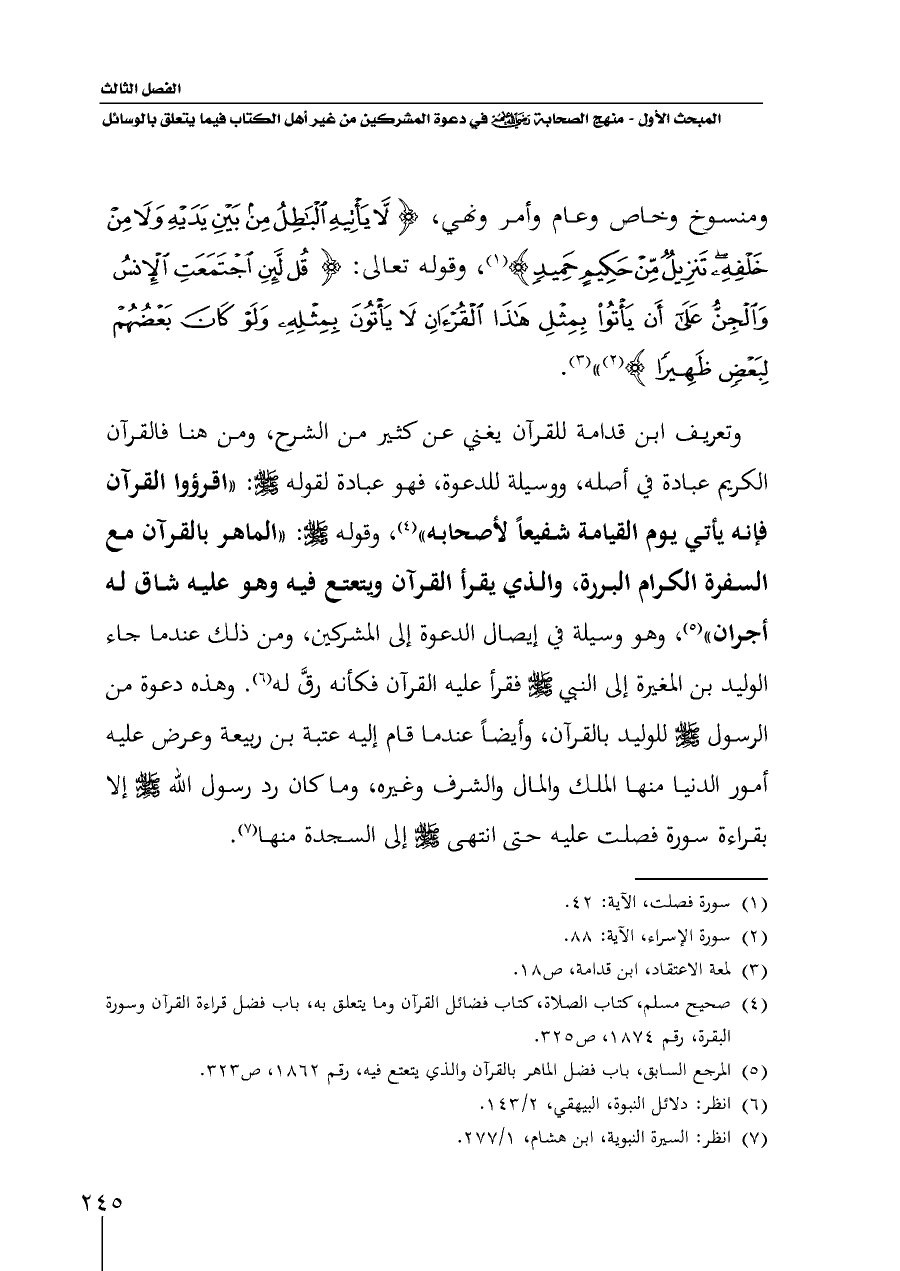 الفصل الثالث
المبحث الأول - منهج الصحابة رضي الله عنهم في دعوة المشركين من غير أهل الكتاب فيما يتعلق بالوسائل
ومنسوخ وخاص وعام وأمر ونهي، ﴿ لَّا يَأْتِيهِ الْبَاطِلُ مِنۢ بَيْنِ يَدَيْهِ وَلَا مِنْ
خَلْفِهِۦ ۖ تَنزِيلٌ مِّنْ حَكِيمٍ حَمِيدٍ ﴾(١)، وقوله تعالى: ﴿ قُل لَّئِنِ ٱجْتَمَعَتِ ٱلْإِنسُ
وَٱلْجِنُّ عَلَىٰٓ أَن يَأْتُوا۟ بِمِثْلِ هَـٰذَا ٱلْقُرْءَانِ لَا يَأْتُونَ بِمِثْلِهِۦ وَلَوْ كَانَ بَعْضُهُمْ
لِبَعْضٍ ظَهِيرًا ﴾(٢)»(٣).
وتعريف ابن قدامة للقرآن يغني عن كثير من الشرح، ومن هنا فالقرآن
الكريم عبادة في أصله، ووسيلة للدعوة، فهو عبادة لقوله ﷺ: «اقرؤوا القرآن
فإنه يأتي يوم القيامة شفيعاً لأصحابه»(٤)، وقوله ﷺ: «الماهر بالقرآن مع
السفرة الكرام البررة، والذي يقرأ القرآن ويتعتع فيه وهو عليه شاق له
أجران»(٥)، وهو وسيلة في إيصال الدعوة إلى المشركين، ومن ذلك عندما جاء
الوليد بن المغيرة إلى النبي ﷺ فقرأ عليه القرآن فكأنه رقَّ له(٦). وهذه دعوة من
الرسول ﷺ للوليد بالقرآن، وأيضاً عندما قام إليه عتبة بن ربيعة وعرض عليه
أمور الدنيا منها الملك والمال والشرف وغيره، وما كان رد رسول الله ﷺ إلا
بقراءة سورة فصلت عليه حتى انتهى ﷺ إلى السجدة منها(٧).
(١) سورة فصلت، الآية: ٤٢.
(٢) سورة الإسراء، الآية: ٨٨.
(٣) لمعة الاعتقاد، ابن قدامة، ص١٨.
(٤) صحيح مسلم، كتاب الصلاة، كتاب فضائل القرآن وما يتعلق به، باب فضل قراءة القرآن وسورة
البقرة، رقم ١٨٧٤، ص٣٢٥.
(٥) المرجع السابق، باب فضل الماهر بالقرآن والذي يتعتع فيه، رقم ١٨٦٢، ص٣٢٣.
(٦) انظر: دلائل النبوة، البيهقي، ١٤٣/٢.
(٧) انظر: السيرة النبوية، ابن هشام، ٢٧٧/١.
٢٤٥